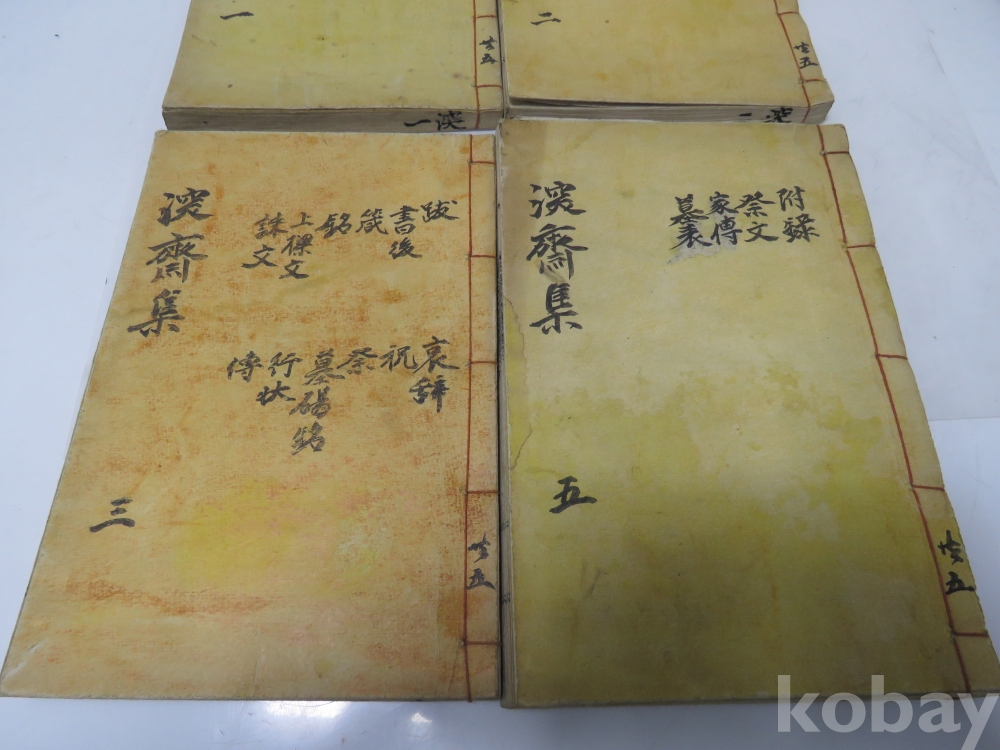 一
共五
二
共五
一
二
深齋集
跋
書後
箴
銘
上樑文
誄文
哀辭
祝
祭
墓碣銘
行狀
傳
三
共五
深齋集
附錄
祭文
家傳
墓表
五
共五
kobay